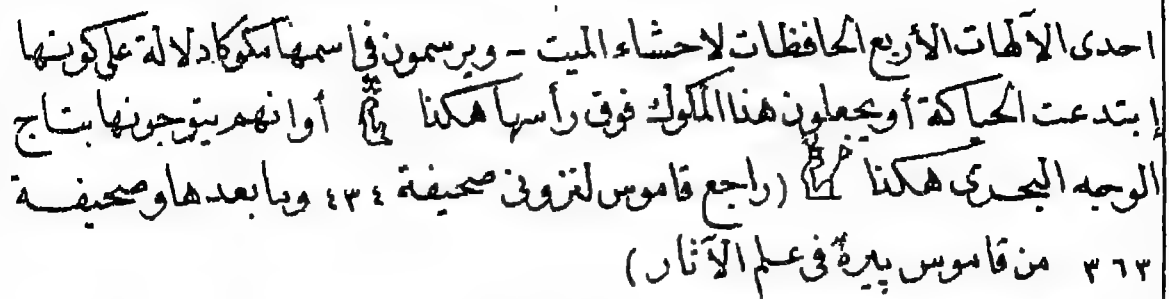 احدى الآلهات الأربع الحافظات لاحشاء الميت - ويرسمون فى اسمها مكوكا دلالة على كونها
إبتدعت الحياكة أو يجعلون هذا المكوك فوق رأسها هكذا أو انهم يتوجونها بتاج
الوجه البحرى هكذا (راجع قاموس لنزونى صحيفة ٤٣٤ وما بعدها وصحيفة
٣٦٣ من قاموس بيره فى علم الآثار)